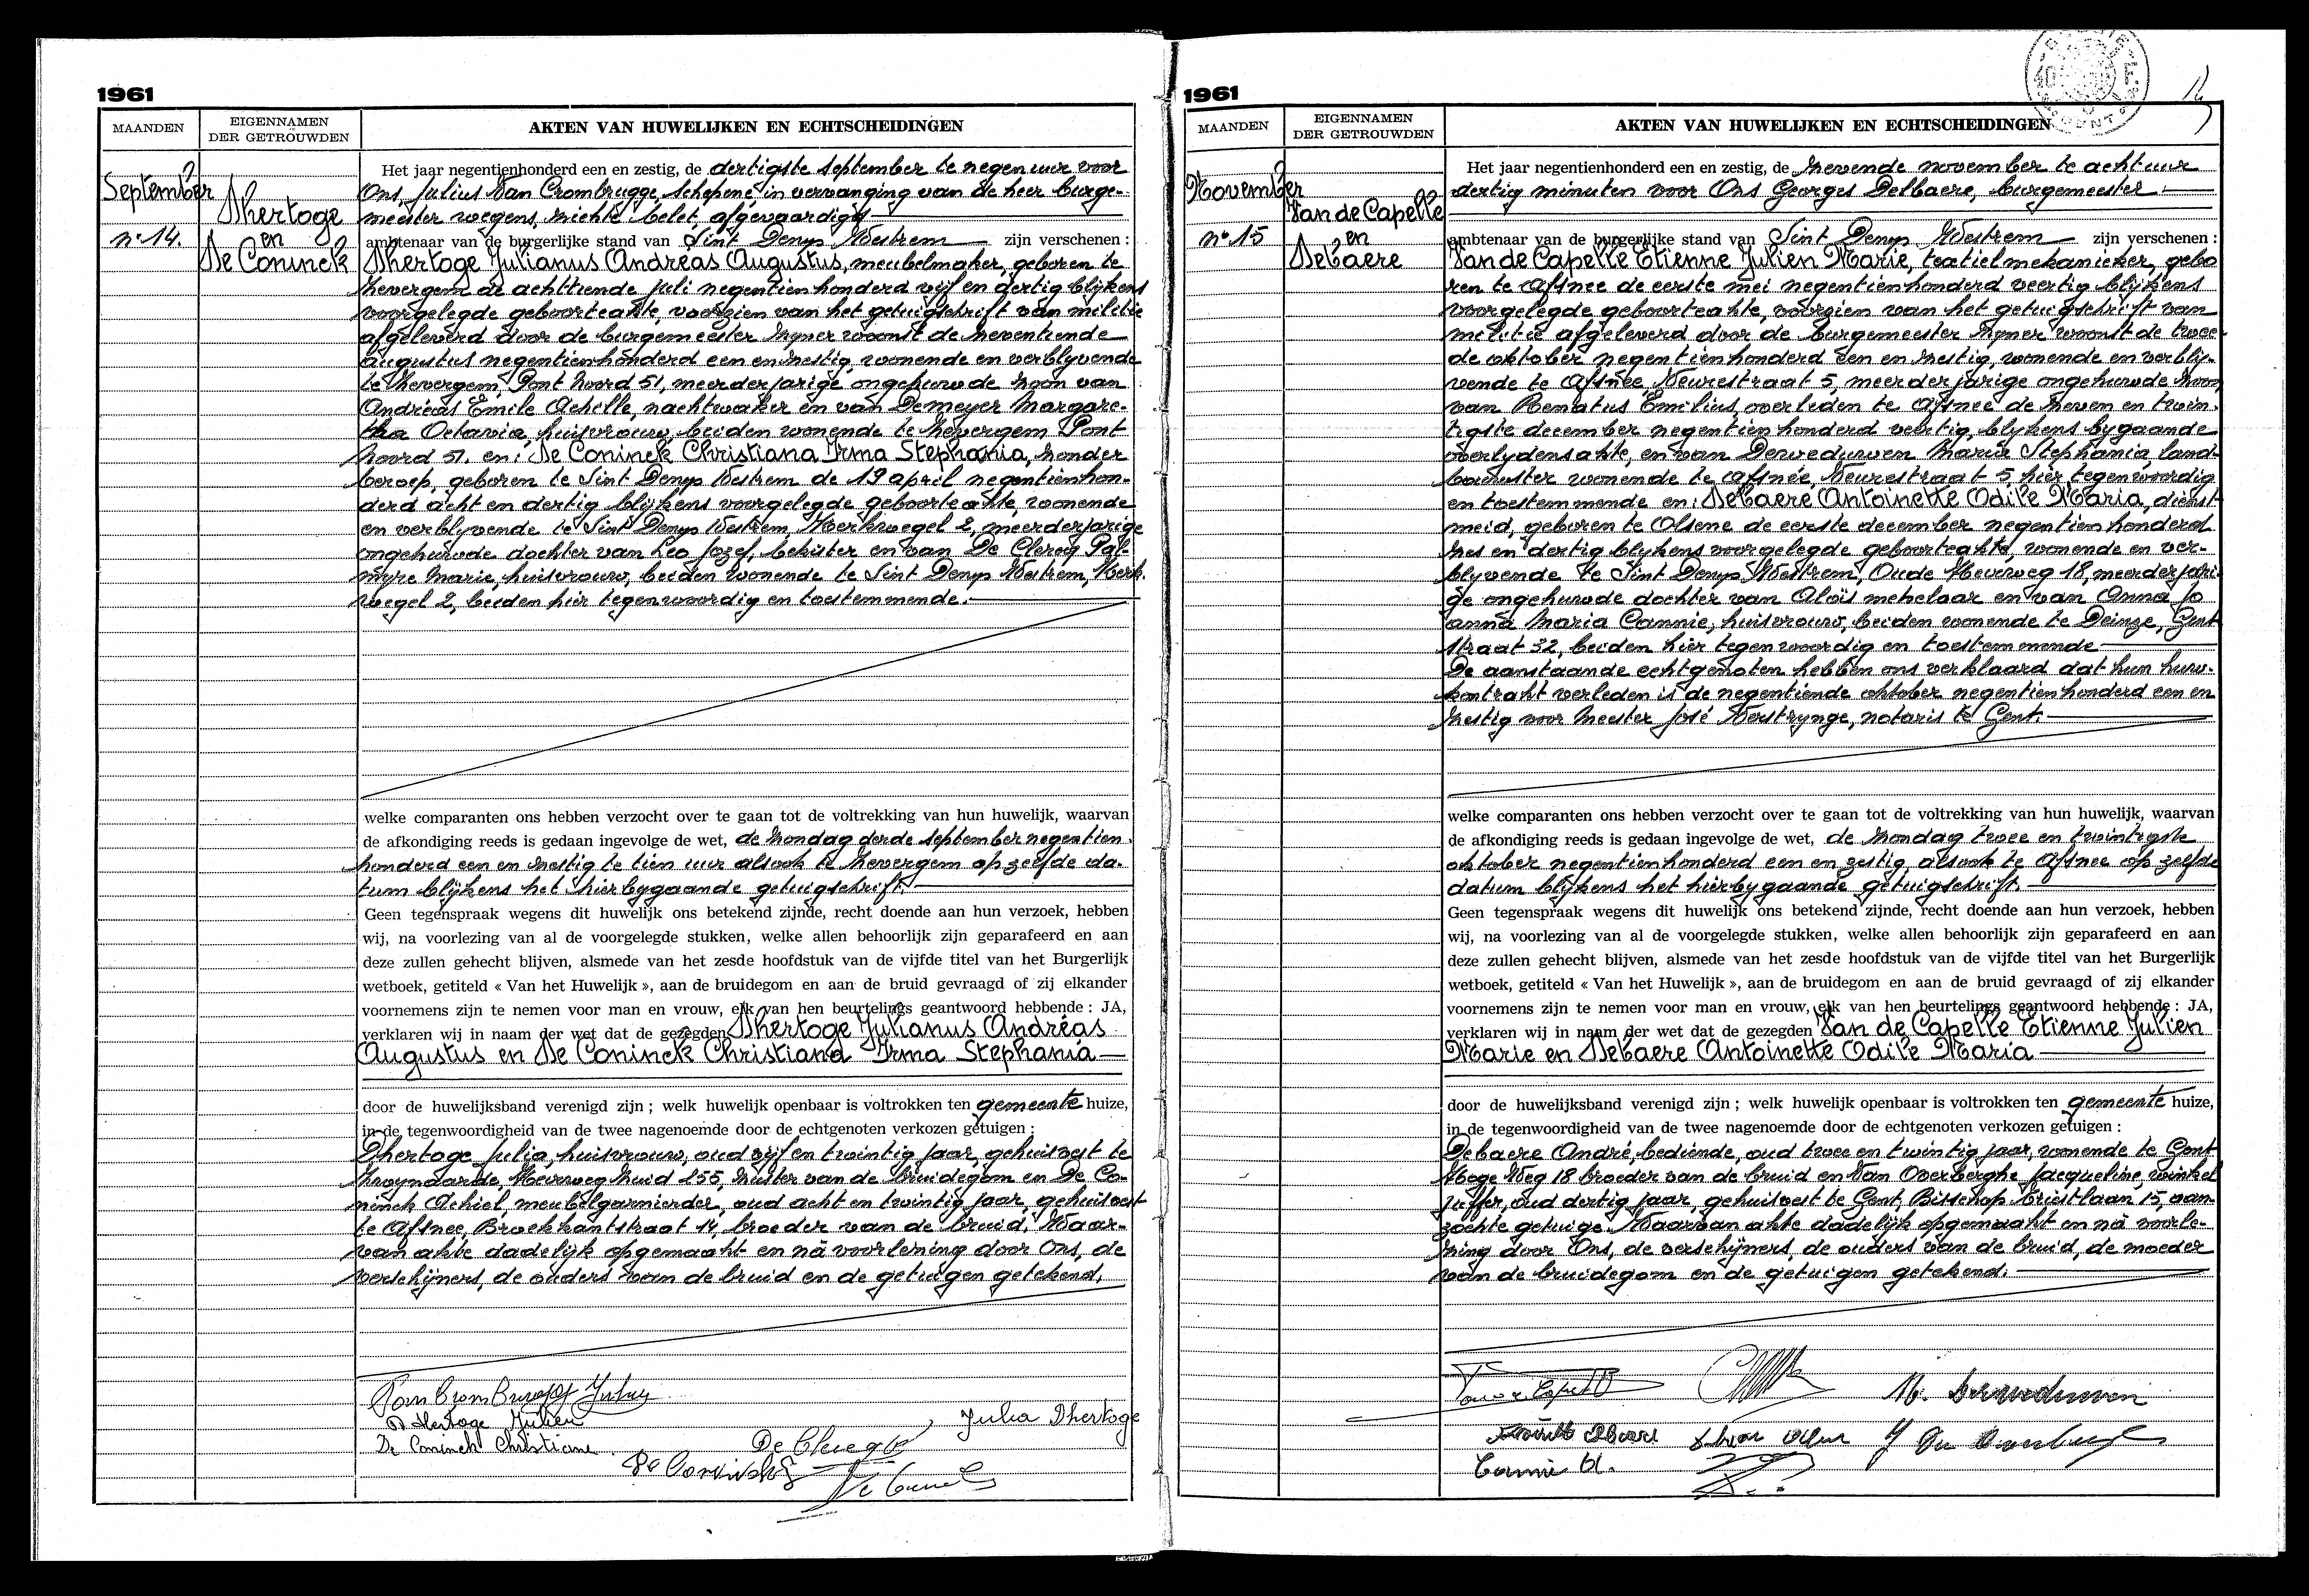 1961
MAANDEN
EIGENNAMEN
DER GETROUWDEN
AKTEN VAN HUWELIJKEN EN ECHTSCHEIDINGEN
September
Dhertoge
en
De Coninck
nº 14.
Het jaar negentienhonderd een en zestig, de dertigste september te negen uur voor
Ons, Julius Van Crombrugge, schepene, in vervanging van de heer burge-
meester wegens, ziekte belet, afgevaardigd
ambtenaar van de burgerlijke stand van Sint Denys Westrem zijn verschenen :
Dhertoge Julianus Andreas Augustus, meubelmaker, geboren te
Zevergem de achttiende juli negentienhonderd vijf en dertig blijkens
voorgelegde geboorteakte, voorzien van het getuigschrift van militie
afgeleverd door de burgemeester zijner woonst de zeventiende
augustus negentienhonderd een en zestig, wonende en verblyvende
te Zevergem, Pont Noord 51, meerderjarige ongehuwde zoon van
Andreas Emile Achille, nachtwaker en van Demeyer Margare-
tha Octavia, huisvrouw, beiden wonende te Zevergem Pont
Noord 51. en : De Coninck Christiana Irma Stephania, zonder
beroep, geboren te Sint Denys Westrem de 19 april negentienhon-
derd acht en dertig blijkens voorgelegde geboorteakte, wonende
en verblyvende te Sint Denys Westrem, Kerkwegel 2, meerderjarige
ongehuwde dochter van Leo Jozef, bekister en van De Clercq Pal-
myre Marie, huisvrouw, beiden wonende te Sint Denys Westrem, Kerk-
wegel 2, beiden hier tegenwoordig en toestemmende.
welke comparanten ons hebben verzocht over te gaan tot de voltrekking van hun huwelijk, waarvan
de afkondiging reeds is gedaan ingevolge de wet, de zondag derde september negentien-
honderd een en zestig te tien uur alsook te Zevergem op zelfde da-
tum blijkens het hierbygaande getuigschrift.
Geen tegenspraak wegens dit huwelijk ons betekend zijnde, recht doende aan hun verzoek, hebben
wij, na voorlezing van al de voorgelegde stukken, welke allen behoorlijk zijn geparafeerd en aan
deze zullen gehecht blijven, alsmede van het zesde hoofdstuk van de vijfde titel van het Burgerlijk
wetboek, getiteld « Van het Huwelijk », aan de bruidegom en aan de bruid gevraagd of zij elkander
voornemens zijn te nemen voor man en vrouw, elk van hen beurtelings geantwoord hebbende : JA,
verklaren wij in naam der wet dat de gezegden Dhertoge Julianus Andreas
Augustus en De Coninck Christiana Irma Stephania
door de huwelijksband verenigd zijn ; welk huwelijk openbaar is voltrokken ten gemeente huize,
in de tegenwoordigheid van de twee nagenoemde door de echtgenoten verkozen getuigen :
Dhertoge Julia, huisvrouw, oud vijf en twintig jaar, gehuisvest te
Zwynaarde, Heerweg Zuid 155, zuster van de bruidegom en De Co-
ninck Achiel, meubelgarnierder, oud acht en twintig jaar, gehuisvest
te Afsnee, Broekkantstraat 14, broeder van de bruid. Waar-
van akte dadelijk opgemaakt en nà voorlezing door Ons, de
verschijners, de ouders van de bruid en de getuigen getekend.
Van Crombrugge Julius
D'Hertoge Julien
De Coninck Christiane
De Clercq
Julia Dhertoge
1961
MAANDEN
EIGENNAMEN
DER GETROUWDEN
AKTEN VAN HUWELIJKEN EN ECHTSCHEIDINGEN
November
Van de Capelle
en
Debaere
nº 15
Het jaar negentienhonderd een en zestig, de zevende november te acht uur
dertig minuten voor Ons Georges Delbaere, burgemeester
ambtenaar van de burgerlijke stand van Sint Denys Westrem zijn verschenen :
Van de Capelle Etienne Julien Marie, textielmekanieker, gebo
ren te Afsnee de eerste mei negentienhonderd veertig blijkens
voorgelegde geboorteakte, voorzien van het getuigschrift van
militie afgeleverd door de burgemeester zijner woonst de twee-
de oktober negentienhonderd een en zestig, wonende en verbly-
vende te Afsnee Veurestraat 5, meerderjarige ongehuwde zoon
van Renatus Emilius, overleden te Afsnee de zeven en twin-
tigste december negentienhonderd veertig, blykens bygaande
overlydensakte, en van Derweduwen Maria Stephania, land-
bouwster wonende te Afsnee, Veurestraat 5 hier tegenwoordig
en toestemmende en : Debaere Antoinette Odile Maria, dienst-
meid, geboren te Olsene de eerste december negentienhonderd
zes en dertig blijkens voorgelegde geboorteakte, wonende en ver-
blyvende te Sint Denys Westrem, Oude Heerweg 18, meerderjari-
ge ongehuwde dochter van Aloïs metselaar en van Anna Jo
anna Maria Cannie, huisvrouw, beiden wonende te Deinze, Gent
straat 32, beiden hier tegenwoordig en toestemmende
De aanstaande echtgenoten hebben ons verklaard dat hun huw-
kontrakt verleden is de negentiende oktober negentienhonderd een en
zestig voor Meester José Verstrynge, notaris te Gent.
welke comparanten ons hebben verzocht over te gaan tot de voltrekking van hun huwelijk, waarvan
de afkondiging reeds is gedaan ingevolge de wet, de zondag twee en twintigste
oktober negentienhonderd een en zestig, alsook te Afsnee op zelfde
datum blijkens het hierbygaande getuigschrift.
Geen tegenspraak wegens dit huwelijk ons betekend zijnde, recht doende aan hun verzoek, hebben
wij, na voorlezing van al de voorgelegde stukken, welke allen behoorlijk zijn geparafeerd en aan
deze zullen gehecht blijven, alsmede van het zesde hoofdstuk van de vijfde titel van het Burgerlijk
wetboek, getiteld « Van het Huwelijk », aan de bruidegom en aan de bruid gevraagd of zij elkander
voornemens zijn te nemen voor man en vrouw, elk van hen beurtelings geantwoord hebbende : JA,
verklaren wij in naam der wet dat de gezegden Van de Capelle Etienne Julien
Marie en Debaere Antoinette Odile Maria
door de huwelijksband verenigd zijn ; welk huwelijk openbaar is voltrokken ten gemeente huize,
in de tegenwoordigheid van de twee nagenoemde door de echtgenoten verkozen getuigen :
Debaere André, bediende, oud twee en twintig jaar, wonende te Gent
Hoge Weg 18 broeder van de bruid en Van Overberghe Jacqueline, winkel
juffer, oud dertig jaar, gehuisvest te Gent, Bisschop Triestlaan 15, aan-
zochte getuige. Waarvan akte dadelijk opgemaakt en nà voorle-
zing door Ons, de verschijners, de ouders van de bruid, de moeder
van de bruidegom en de getuigen getekend.
Cannie